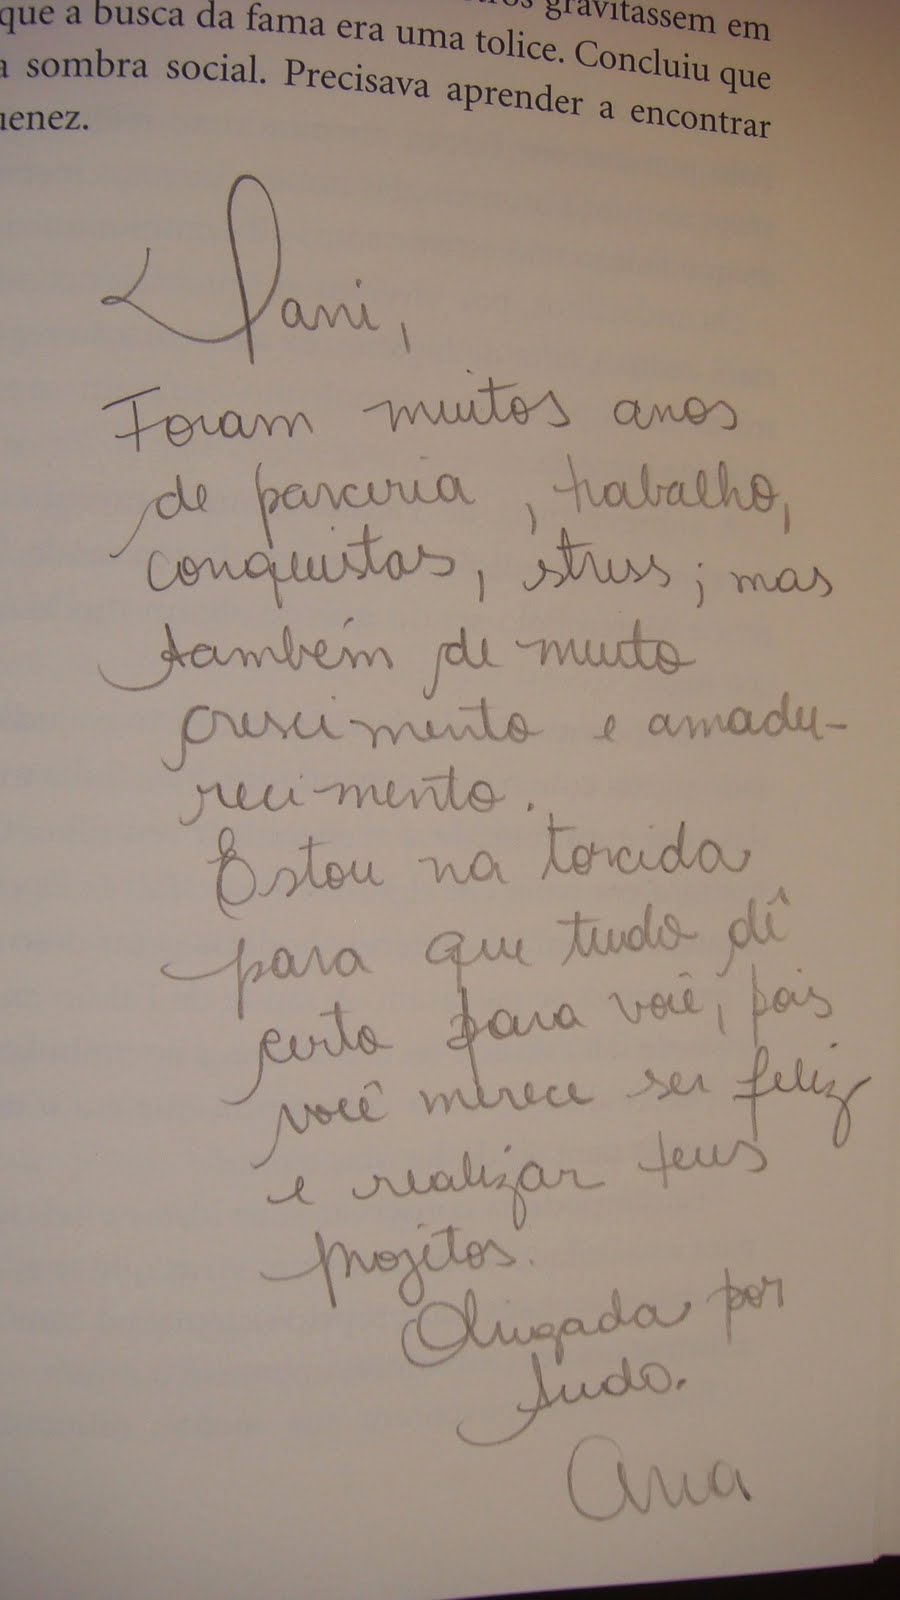 gravitassem em
que a busca da fama era uma tolice. Concluiu que
a sombra social. Precisava aprender a encontrar
uenez.
Dani,
Foram muitos anos
de parceria, trabalho,
conquistas, stress; mas
também de muito
crescimento e amadu-
recimento.
Estou na torcida
para que tudo dê
certo para você, pois
você merece ser feliz
e realizar teus
projetos.
Obrigada por
tudo.
Ana